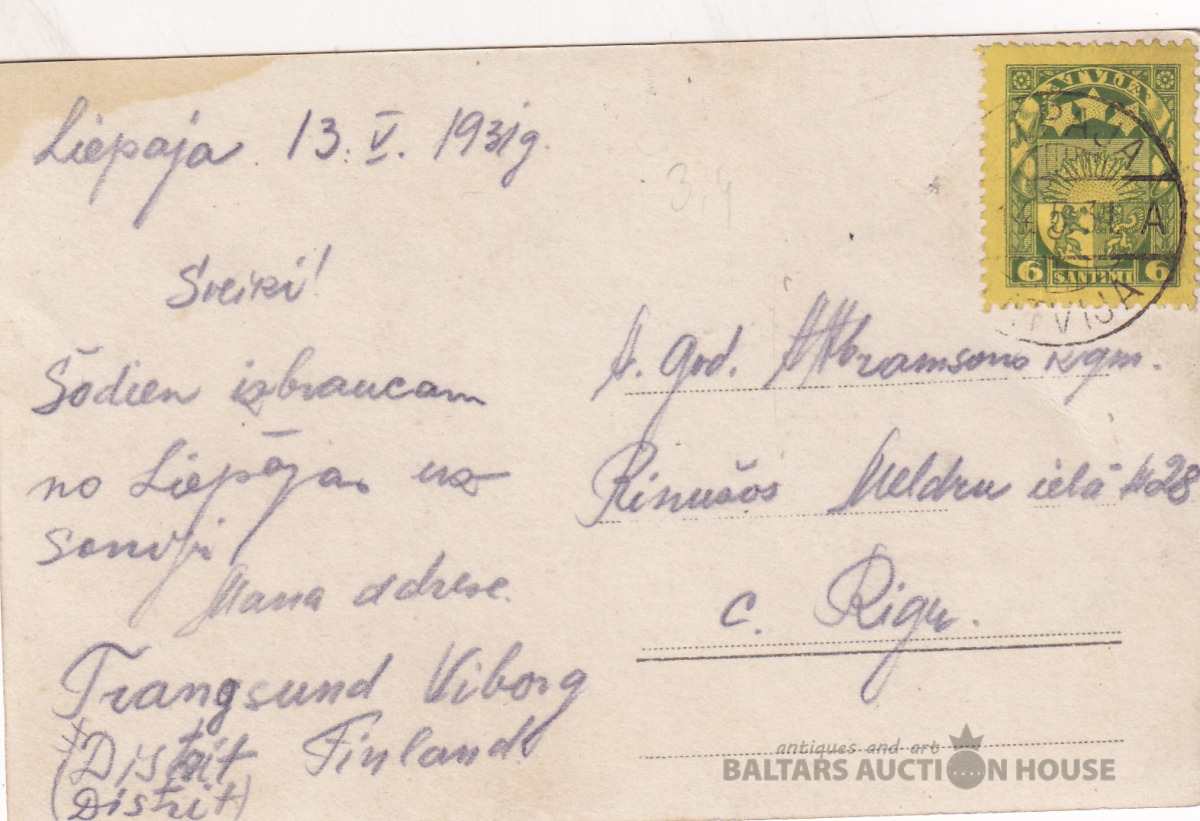 Liepaja. 13. V. 1931g.
Sveiki!
Šodien izbraucam
no Liepājas uz
Somiji
Mana adrese.
Trangsund Viborg
Distrit Finland
(Distrit)
3,4
LATVIJA
6 SANTIMI 6
PAJA
5.31 A
LATVIJA
A. god. A. Abramsons kgm.
Rinušos Meldru ielā № 28
c. Rigu.
antiques and art
BALTARS AUCTION HOUSE